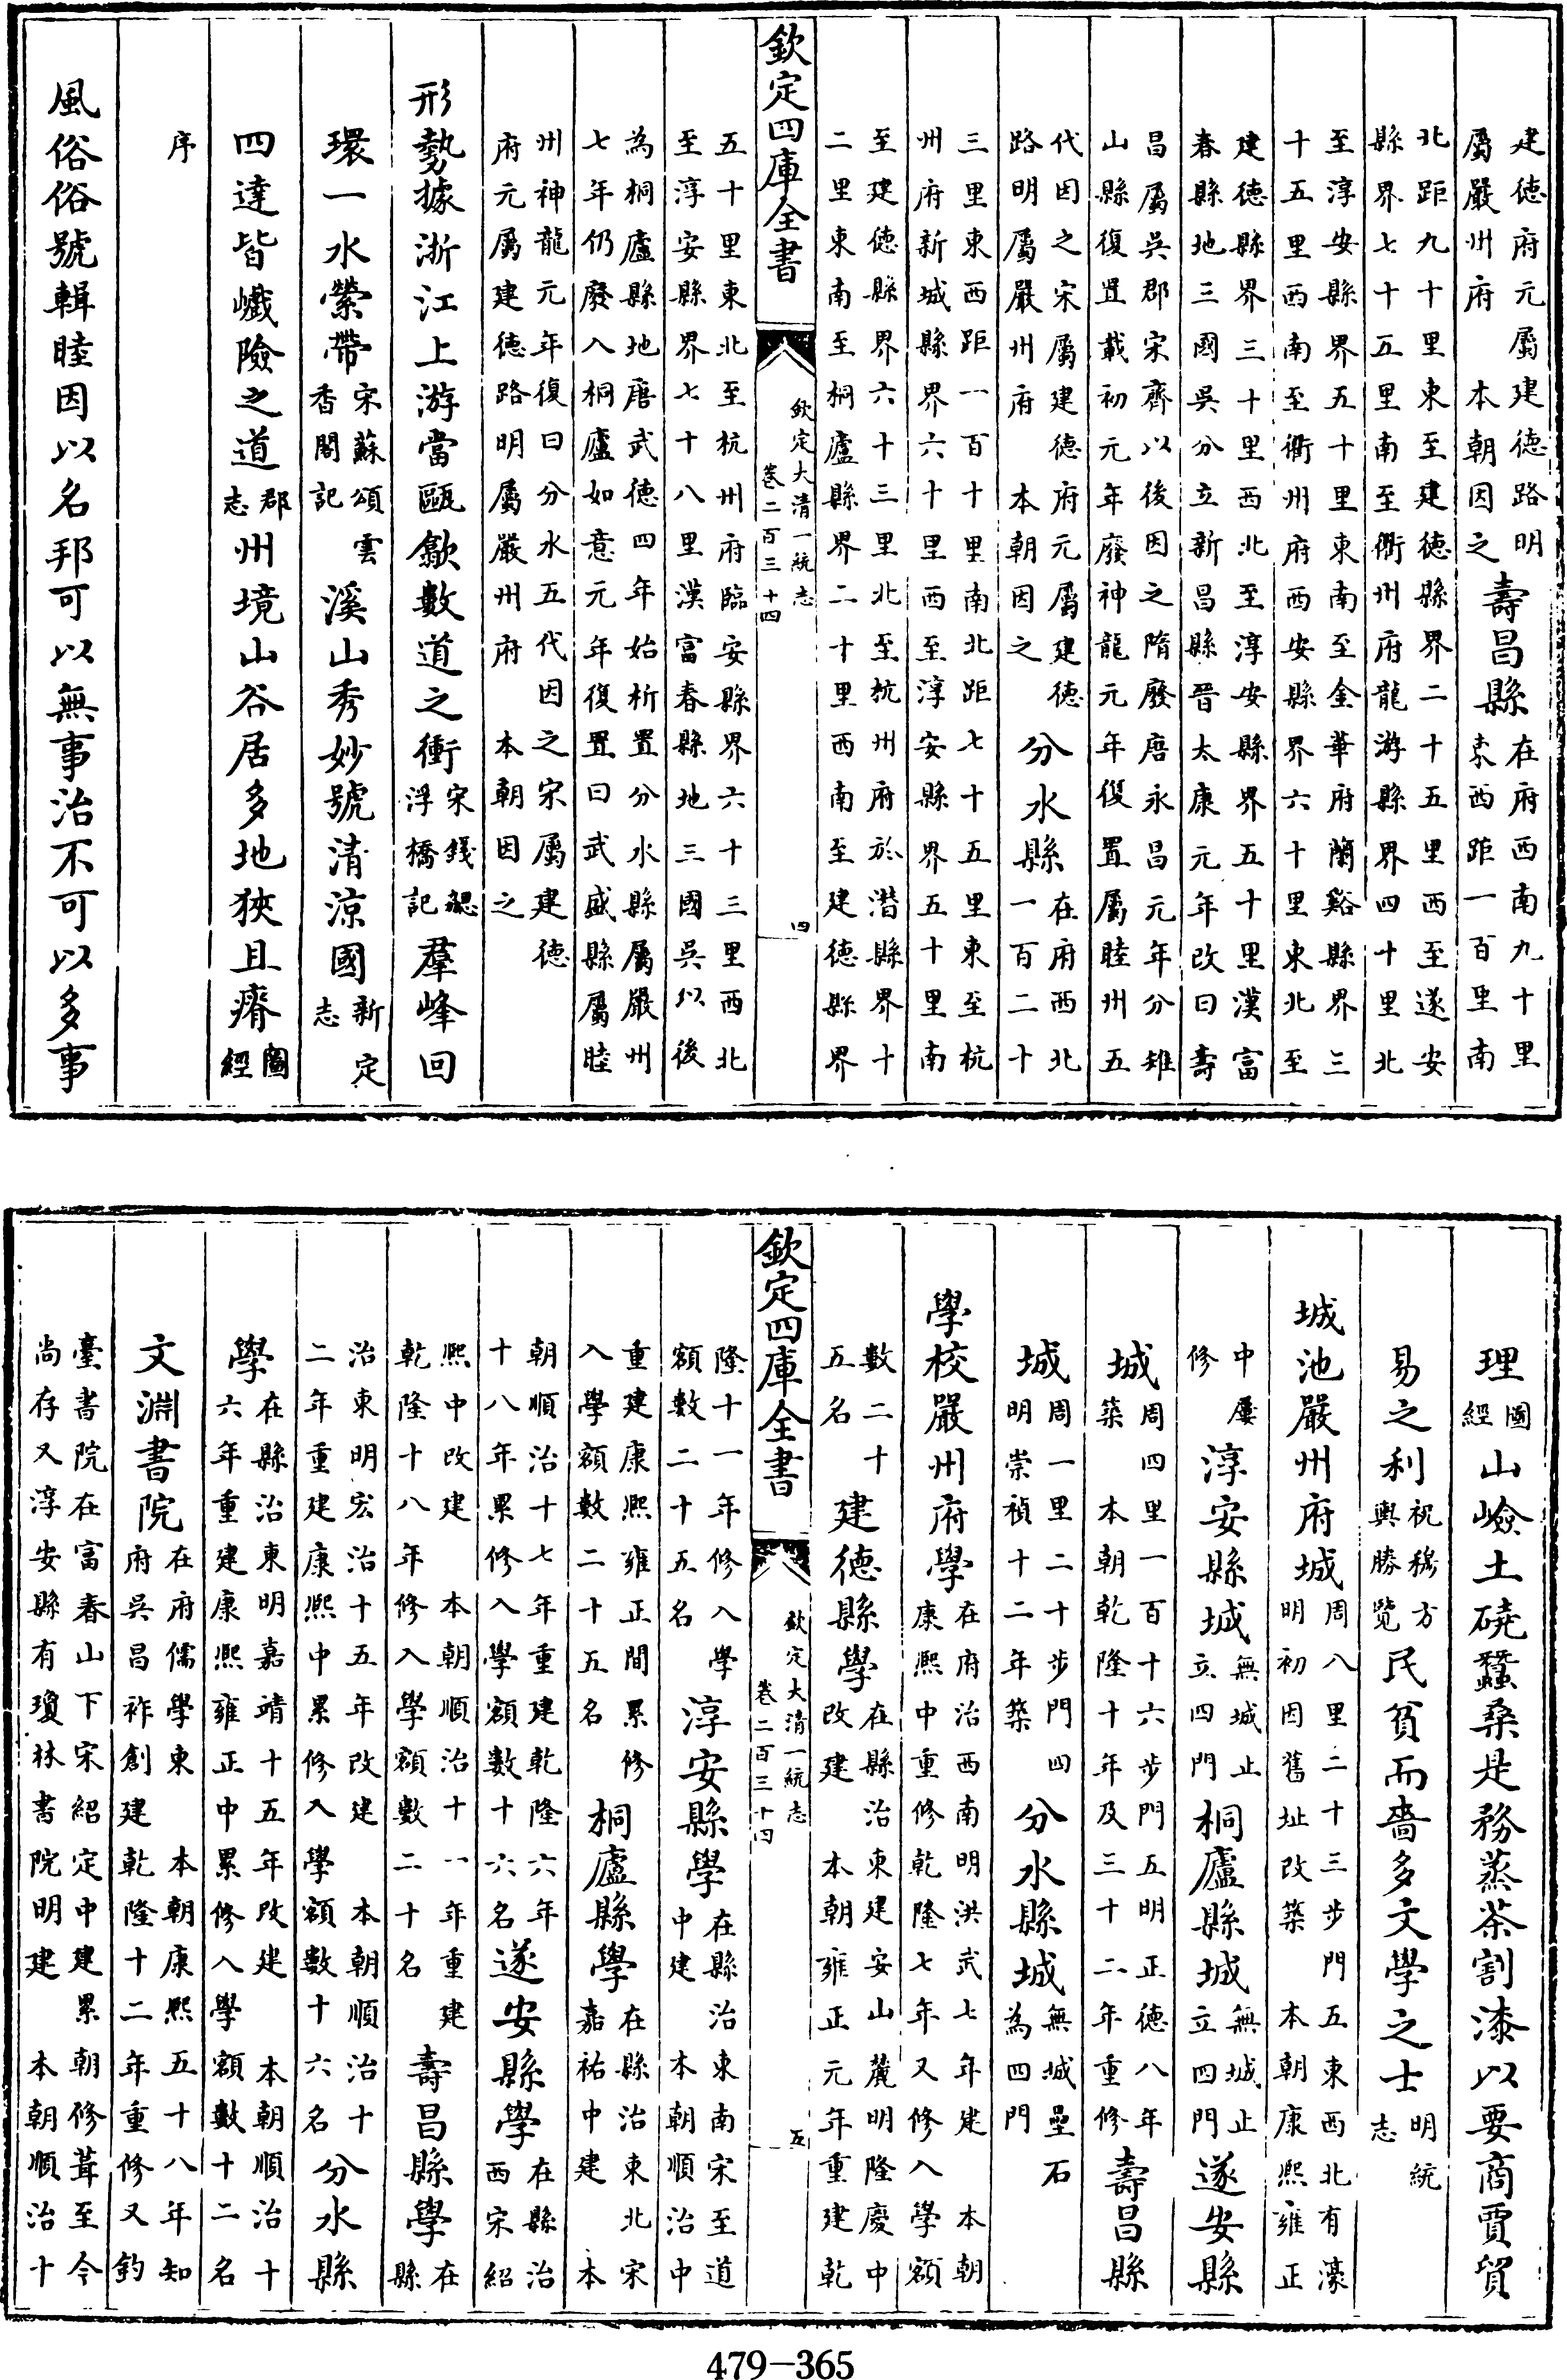 建德府元屬建德路明屬嚴州府 本朝因之 壽昌縣 在府西南九十里東西距一百里南
北距九十里東至建德縣界二十五里西至遂安縣界七十五里南至衢州府龍游縣界四十里北
至淳安縣界五十里東南至金華府蘭谿縣界三十五里西南至衢州府西安縣界六十里東北至
建德縣界三十里西北至淳安縣界五十里漢富春縣地三國吳分立新昌縣晉太康元年改曰壽
昌屬吳郡宋齊以後因之隋廢唐永昌元年分雉山縣復置載初元年廢神龍元年復置屬睦州五
代因之宋屬建德府元屬建德路明屬嚴州府 本朝因之 分水縣 在府西北一百二十
三里東西距一百十里南北距七十五里東至杭州府新城縣界六十里西至淳安縣界五十里南
至建德縣界六十三里北至杭州府於潛縣界十二里東南至桐廬縣界二十里西南至建德縣界
欽定四庫全書 欽定大清一統志 卷二百三十四 四
五十里東北至杭州府臨安縣界六十三里西北至淳安縣界七十八里漢富春縣地三國吳以後
為桐廬縣地唐武德四年始析置分水縣屬嚴州七年仍廢入桐廬如意元年復置曰武盛縣屬睦
州神龍元年復曰分水五代因之宋屬建德府元屬建德路明屬嚴州府 本朝因之
形勢據浙江上游當甌歙數道之衝 宋錢勰浮橋記 羣峰回
環一水縈帶 宋蘇頌雲香閣記 溪山秀妙號清涼國 新定志
四達皆巇險之道 郡志 州境山谷居多地狹且瘠 圖經
序
風俗俗號輯睦因以名邦可以無事治不可以多事
理 圖經 山嶮土磽蠶桑是務蒸茶割漆以要商賈貿
易之利 祝穆方輿勝覽 民貧而嗇多文學之士 明統志
城池嚴州府城 周八里二十三步門五東西北有濠明初因舊址改築 本朝康熙雍正
中屢修 淳安縣城 無城止立四門 桐廬縣城 無城止立四門 遂安縣
城 周四里一百十六步門五明正德八年築 本朝乾隆十年及三十二年重修 壽昌縣
城 周一里二十步門四明崇禎十二年築 分水縣城 無城壘石為四門
學校嚴州府學 在府治西南明洪武七年建 本朝康熙中重修乾隆七年又修入學額
數二十五名 建德縣學 在縣治東建安山麓明隆慶中改建 本朝雍正元年重建乾
欽定四庫全書 欽定大清一統志 卷二百三十四 五
隆十一年修入學額數二十五名 淳安縣學 在縣治東南宋至道中建 本朝順治中
重建康熙雍正間累修入學額數二十五名 桐廬縣學 在縣治東北宋嘉祐中建 本
朝順治十七年重建乾隆六年十八年累修入學額數十六名 遂安縣學 在縣治西宋紹
熙中改建 本朝順治十一年重建乾隆十八年修入學額數二十名 壽昌縣學 在縣
治東明宏治十五年改建 本朝順治十二年重建康熙中累修入學額數十六名 分水縣
學 在縣治東明嘉靖十五年改建 本朝順治十六年重建康熙雍正中累修入學額數十二名
文淵書院 在府儒學東 本朝康熙五十八年知府吳昌祚創建乾隆十二年重修又釣
臺書院在富春山下宋紹定中建累朝修葺至今尚存又淳安縣有瓊林書院明建 本朝順治十
479-365